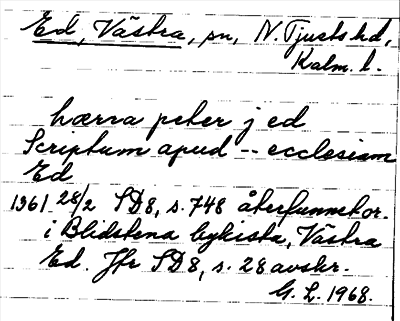 Ed, Västra, sn, N. Tjusts hd,
Kalm. l.
hærra peter j ed
Scriptum apud -- ecclesiam
Ed
1361 28/2 SD8, s. 748 återfunnet or.
i Blidstena bykista, Västra
Ed. Jfr SD8, s. 28 avskr.
G. L. 1968.